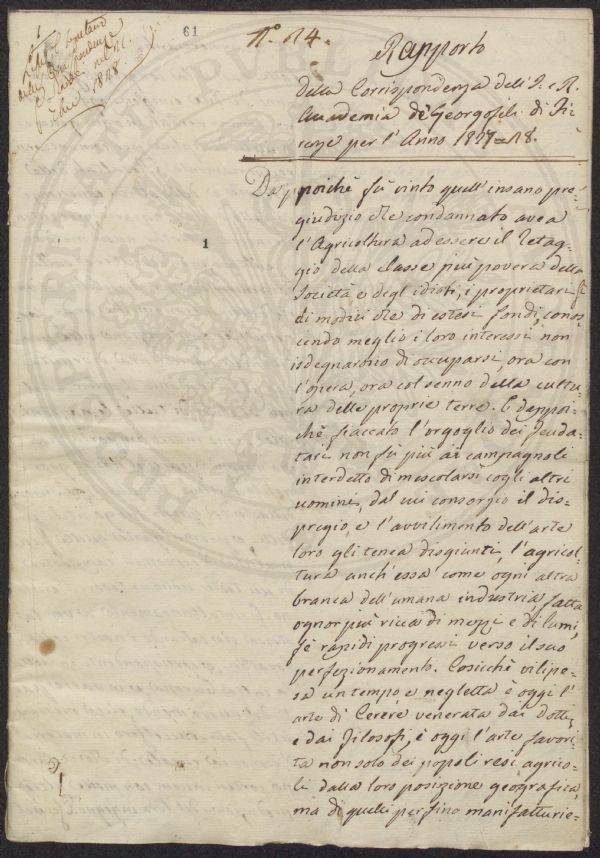 61
N.° 14.
Rapporto
della Corrispondenza dell'I. e R.
Accademia de' Georgofili di Fi-
renze per l'Anno 1827=28.
Dappoichè fù vinto quell'insano pre-
giudizio che condannato avea
l'Agricoltura ad essere il retag-
gio della classe più povera della
Società e degl'idioti, i proprietari sì
di modici che di estesi fondi, conos-
cendo meglio i loro interessi non
isdegnarono di occuparsi, ora con
l'opera, ora col senno della cultu-
ra delle proprie terre. E dappoi-
chè fiaccato l'orgoglio dei feuda-
tari non fù più ai campagnoli
interdetto di mescolarsi cogli altri
uomini, dal cui consorzio il dis-
pregio, e l'avvilimento dell'arte
loro gli tenea disgiunti, l'agricol-
tura anch'essa come ogni altra
branca dell'umana industria fatta
ognor più ricca di mezzi e di lumi,
fè rapidi progressi verso il suo
perfezionamento. Cosicchè vilipe-
sa un tempo e negletta è oggi l'
arte di Cerere venerata dai Dotti,
e dai Filosofi, è oggi l'arte favori-
ta non solo dei popoli resi agrico-
li dalla loro posizione geografica,
ma di quelli perfino manifatturie-
1